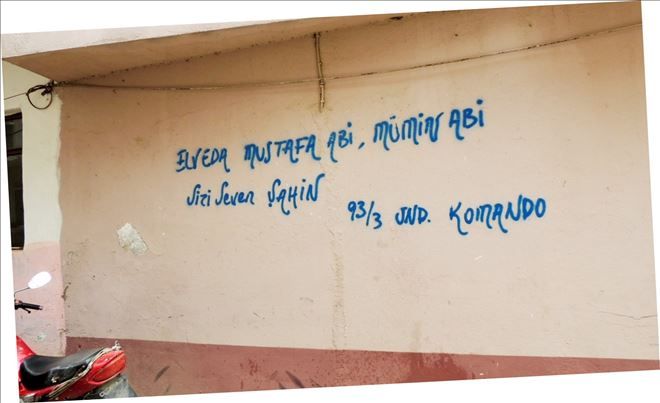 ELVEDA MUSTAFA ABİ, MÜMİN ABİ
Sizi Seven ŞAHİN
93/3 JND. KOMANDO